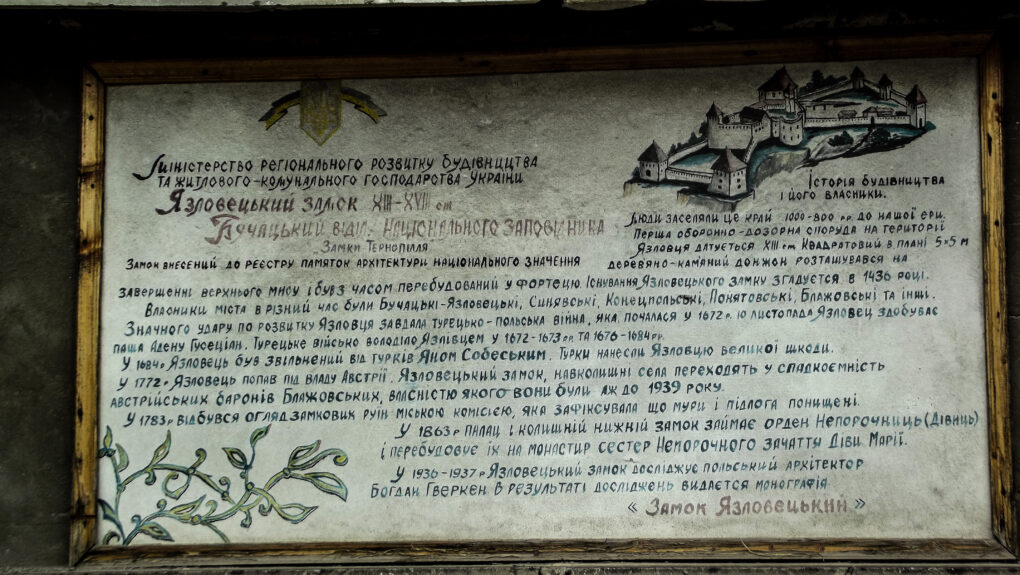 Міністерство регіонального розвитку будівництва
та житлового-комунального господарства України
Язловецький замок XIII-XVII ст
Бучацький відділ. національного заповідника
Замки Тернопілля
Замок внесений до реєстру памяток архітектури національного значення
Історія будівництва
і його власники.
Люди заселяли це край 1000-800 рр. до нашої ери.
Перша оборонно-дозорна споруда на території
Язловця датується XIII ст. Квадратовий в плані 5×5 м
деревяно-камяний донжон розташувався на
завершенні верхнього мису і був з часом перебудований у фортецю. Існування Язловецького замку згадується в 1436 році.
Власники міста в різний час були Бучацькі-Язловецькі, Синявські, Конецпольські, Понятовські, Блажовські та інші.
Значного удару по розвитку Язловця завдала турецько-польська війна, яка почалася у 1672 р. 10 листопада Язловец здобуває
паша Адену Гусеціан. Турецьке військо володіло Язлівцем у 1672-1673 рр. та 1676-1684 рр.
У 1684 р Язловець був звільнений від турків Яном Собеським. Турки нанесли Язловцю великої шкоди.
У 1772 р Язловець попав під владу Австрії. Язловецький замок, навколишні села переходять у спадкоємність
австрійських баронів Блажовських, власністю якого вони були аж до 1939 року.
У 1783 р відбувся огляд замкових руїн міською комісією, яка зафіксувала що мури і підлога понищені.
У 1863 р палац і колишній нижній замок займає орден Непорочниць (Дівиць)
і перебудовує їх на монастир сестер Непорочного зачаття Діви Марії.
У 1936-1937 р Язловецький замок досліджує польський архітектор
Богдан Гверкен в результаті досліджень видається монографія
« Замок Язловецький »